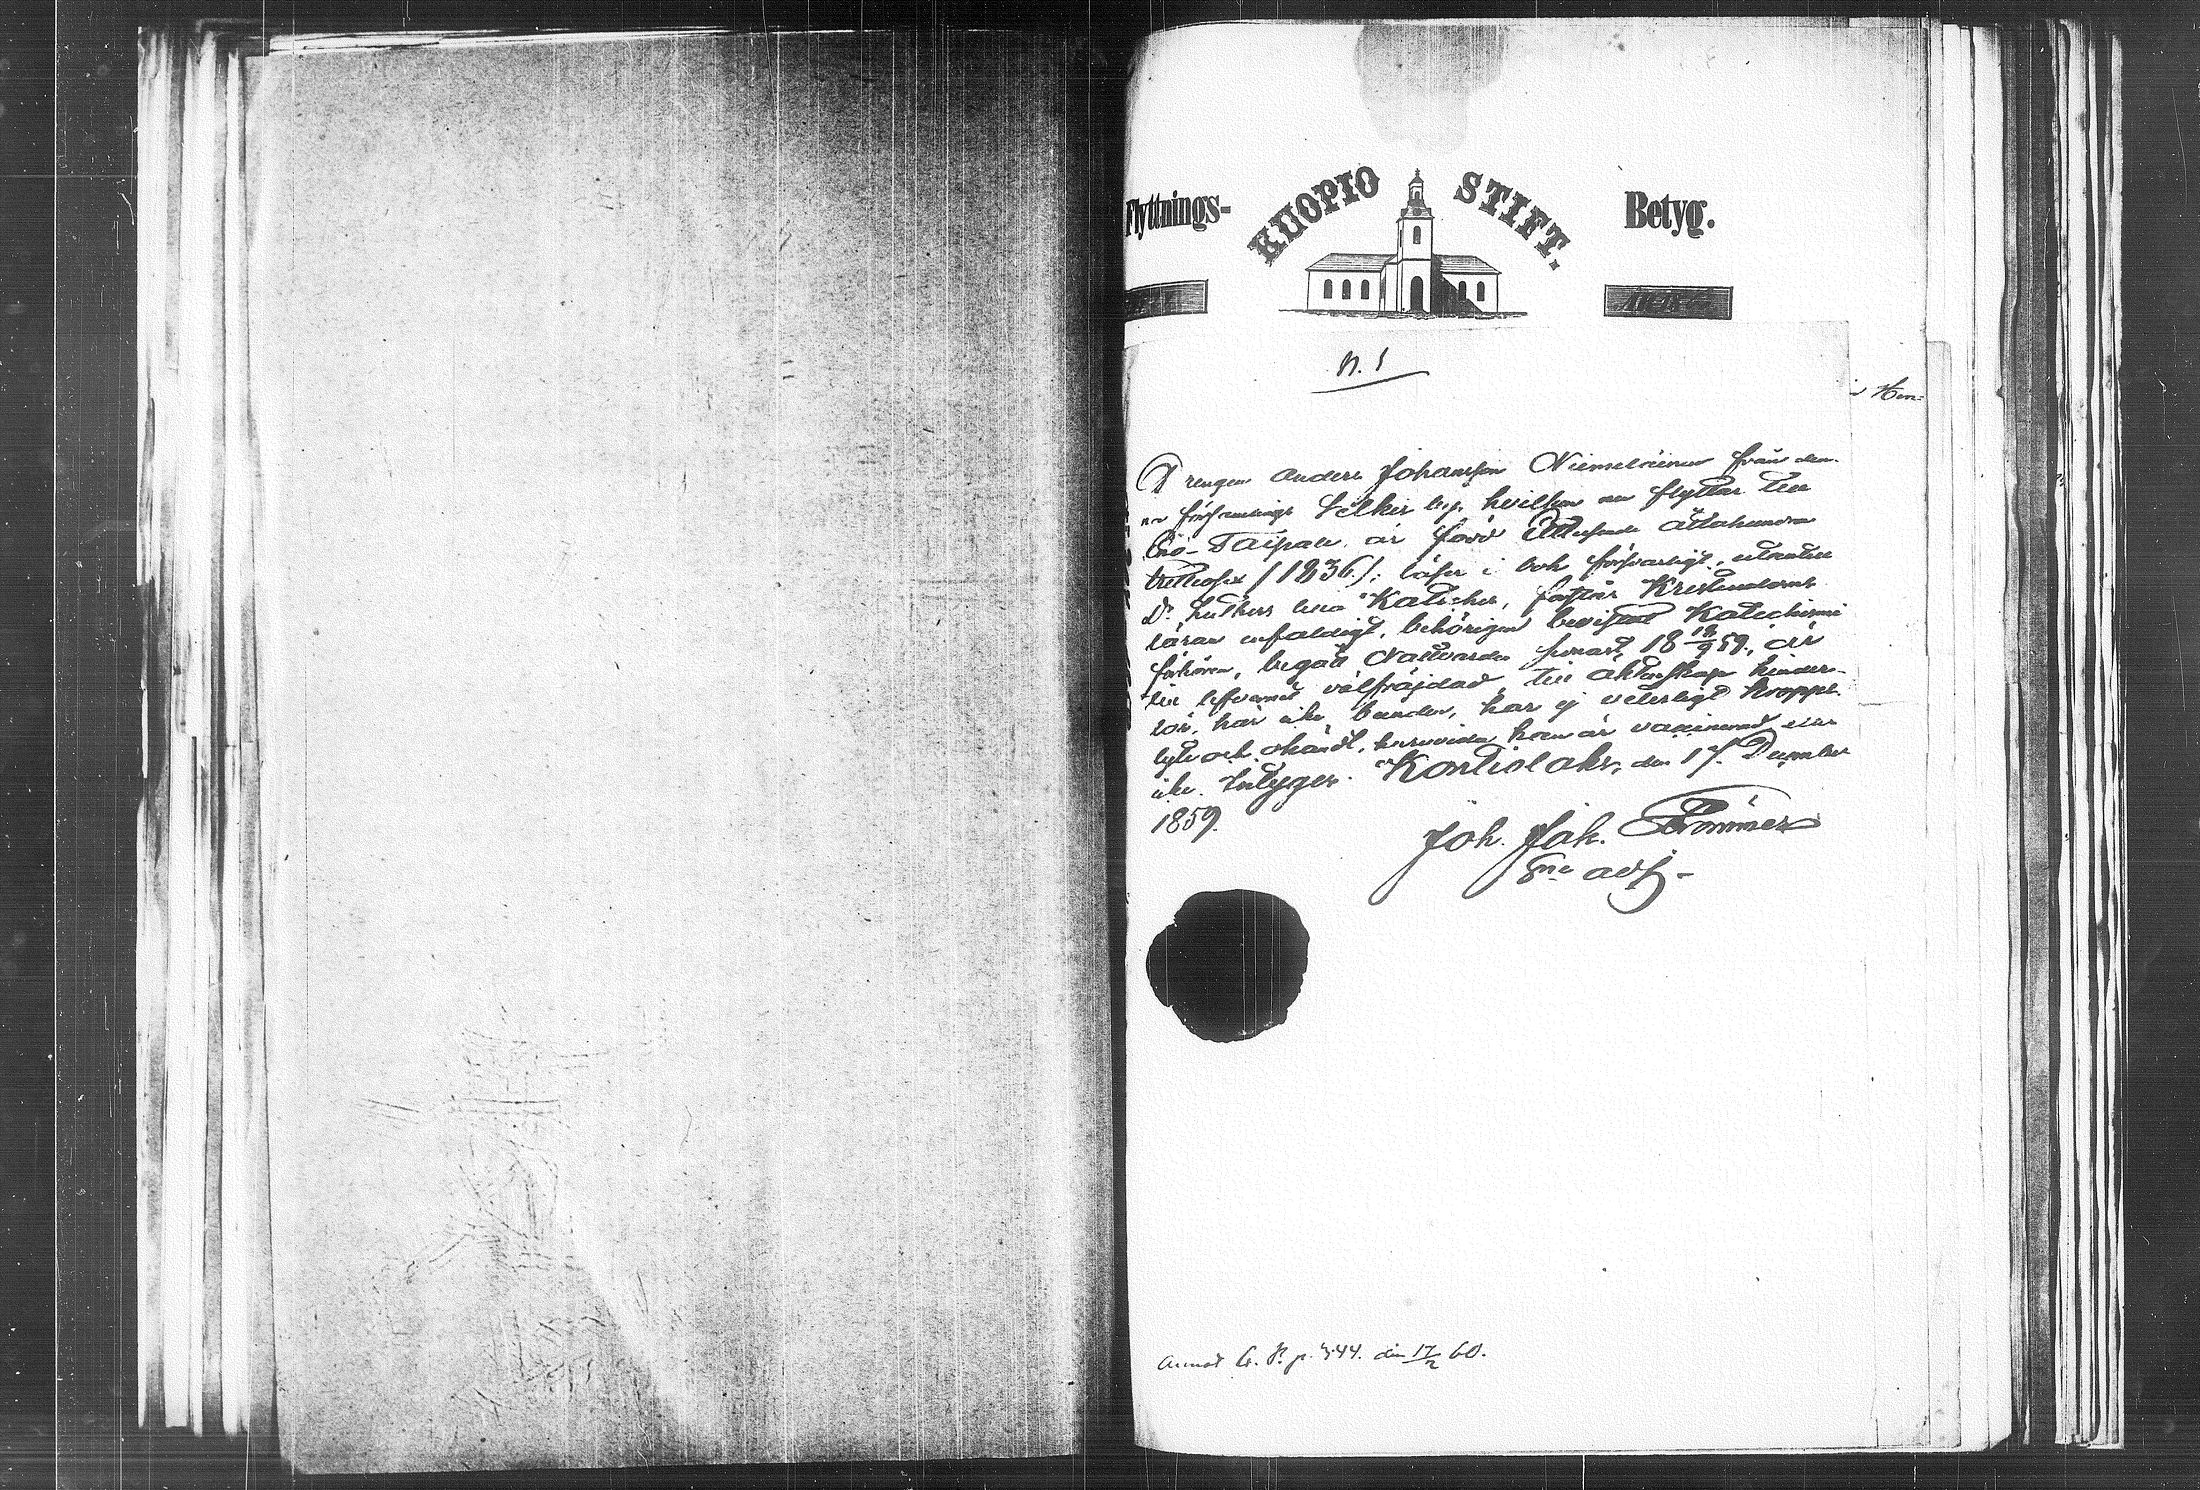 Flyttnings- KUOPIO STIFT. Betyg.
N. 1
Drengen Anders Johansson Niemeläinen från den-
na församlings Selkie by, hvilken nu flyttar till
Eno-Taipale, är född Ettusende åttahundra
trettiosex (1836); läser i bok försvarligt, utantill
Dr Luthers lilla Kateches, förstår Kristendoms
läran enfaldigt, behörigen bevistat Katechismi
förhören, begått Nattvarden senast 18 18/9 59, är
till lefvernet välfräjdad, till äktenskap hinder-
lös, här icke bunden, har ej veterligt kropps-
lyte och ohändt, huruvida han är vaccinerad eller
icke. Intyger. Kontiolaks, den 17 December
1859.
Joh. Jak.
adj.
Annot. p. 444. den 17/2 60.